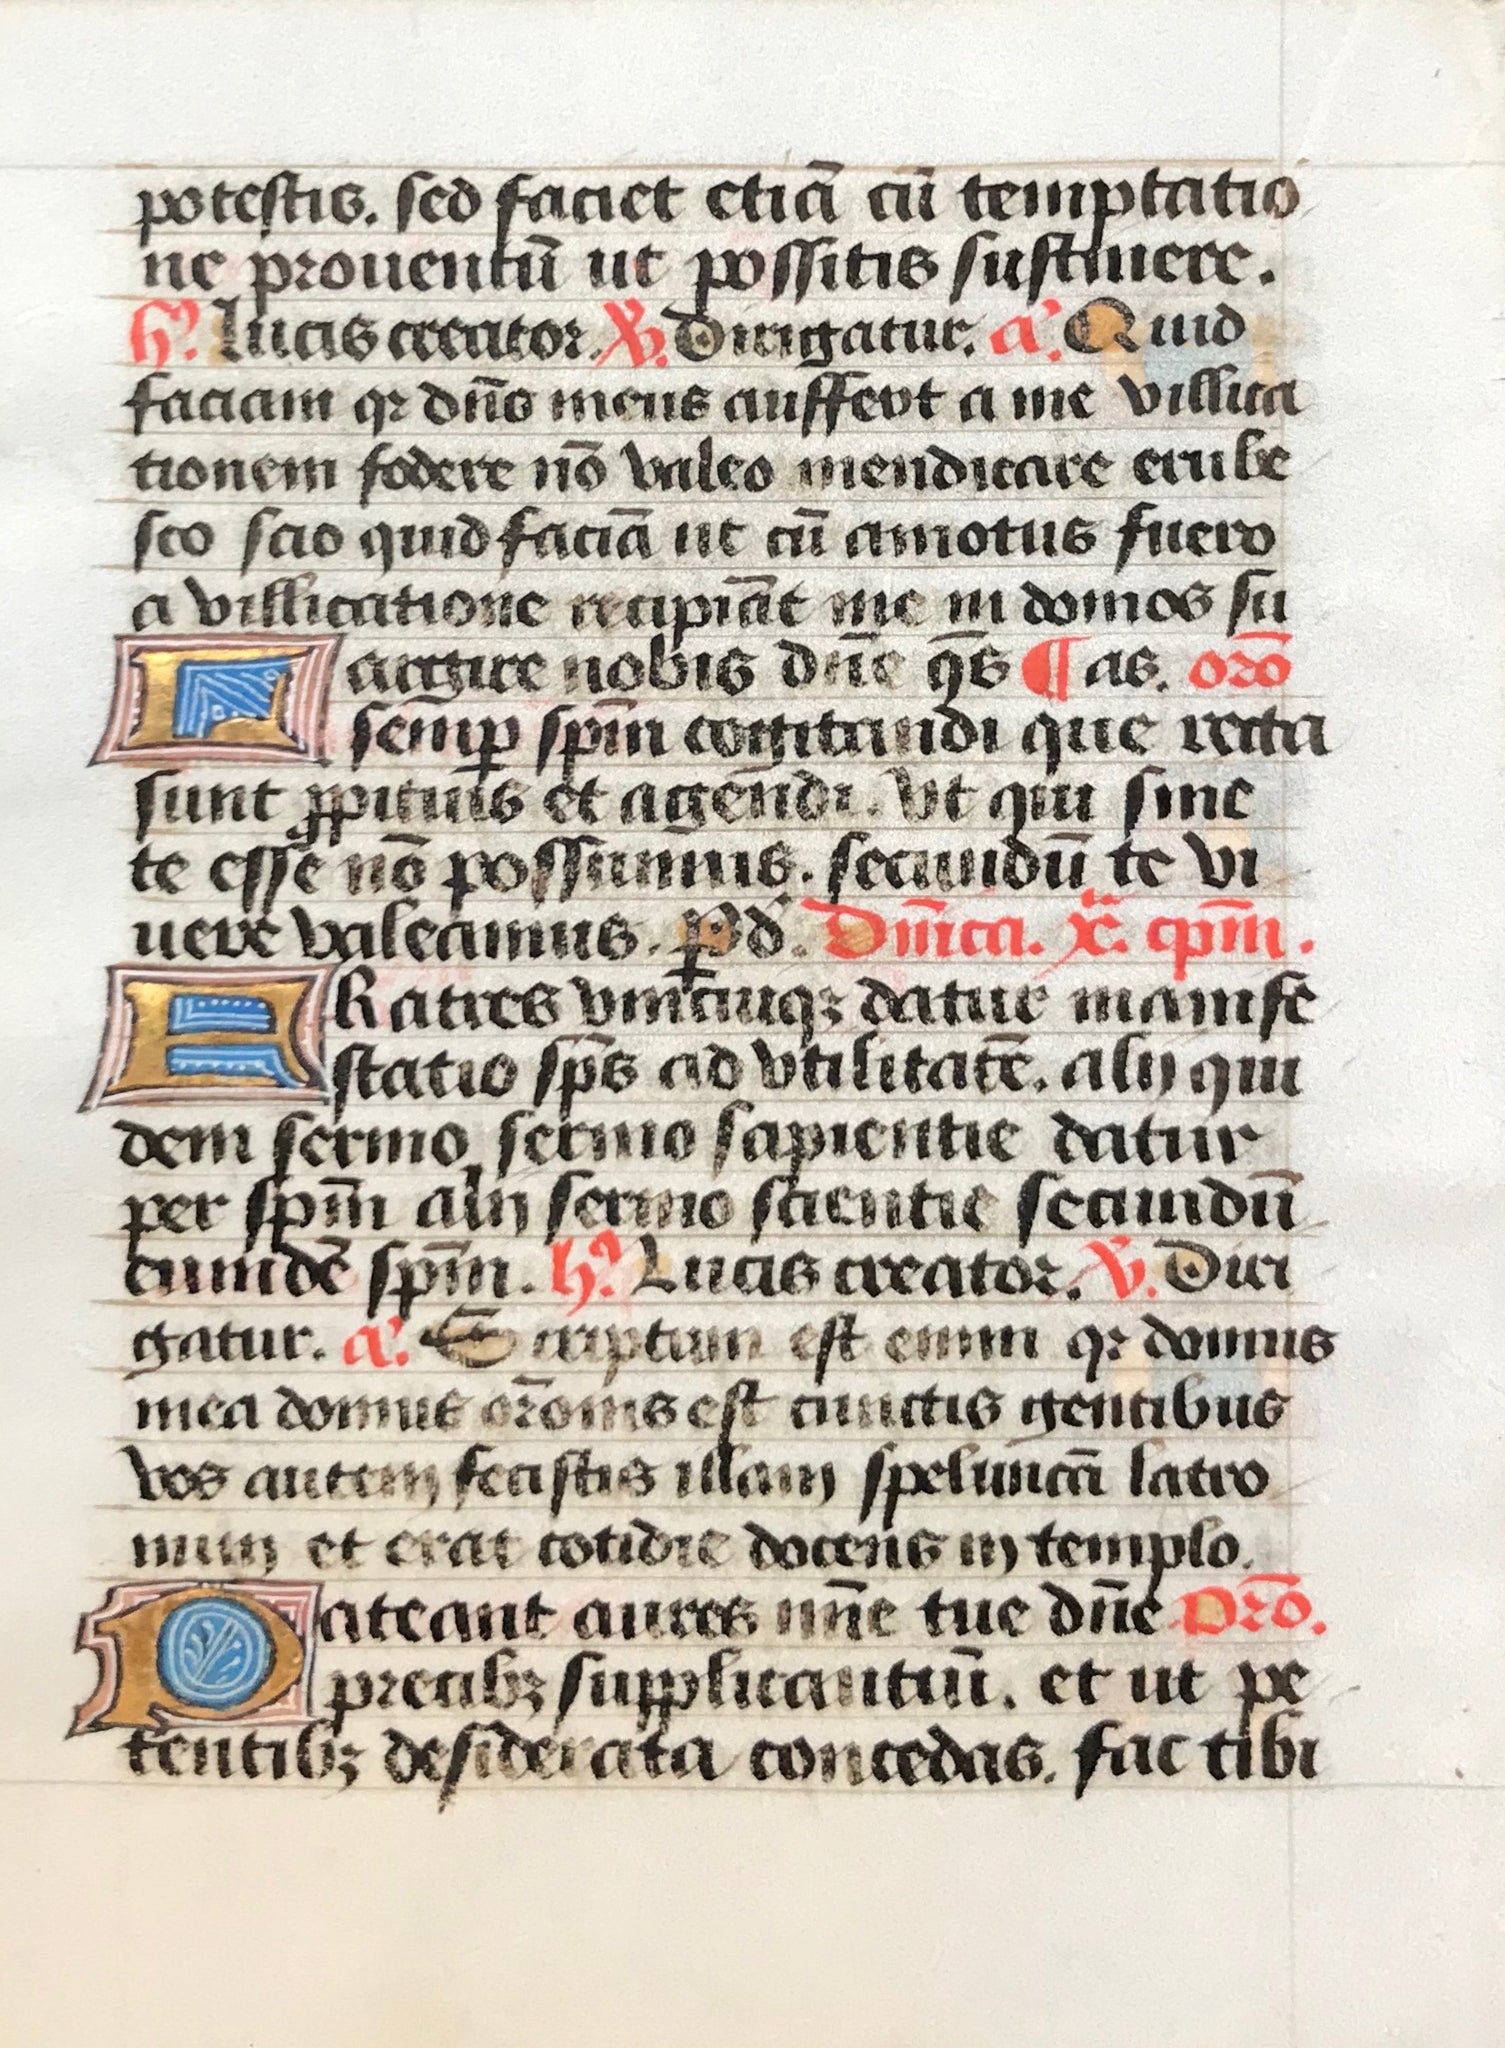 potestis. sed faciet etiã cũ temptatio
ne prouentũ ut possitis sustinere.
h⁹. Lucis creator. V̷. Dirigatur. a᾽. Quid
faciam qꝛ dñs meus auffert a me villica
tionem fodere nõ valeo mendicare erube
sco scio quid faciã ut cũ amotus fuero
a villicatione recipiãt me in domos su
Largire nobis dñe q̃s ¶ as. orõ
semꝑ sp̃m cogitandi que recta
sunt ꝓpitius et agendi. Vt qui sine
te esse nõ possumus. secundũ te vi
uere valeamus. P d. Dñica. x. p̃.
FRatres vnicuiqꝫ datur manife
statio sp̃s ad vtilitatẽ. alij qui
dem sermo, sermo sapientie datur
per sp̃m alij sermo scientie secundũ
eundẽ sp̃m. h⁹. Lucis creator. V̷. Diri
gatur. a᾽. Scriptum est enim qꝛ domus
mea domus orõnis est cunctis gentibus
vos autem fecistis illam speluncã latro
num et erat cotidie docens in templo.
Pateant aures mie tue dñe Orõ.
precibꝫ supplicantiũ. et ut pe
tentibꝫ desiderata concedas. fac tibi